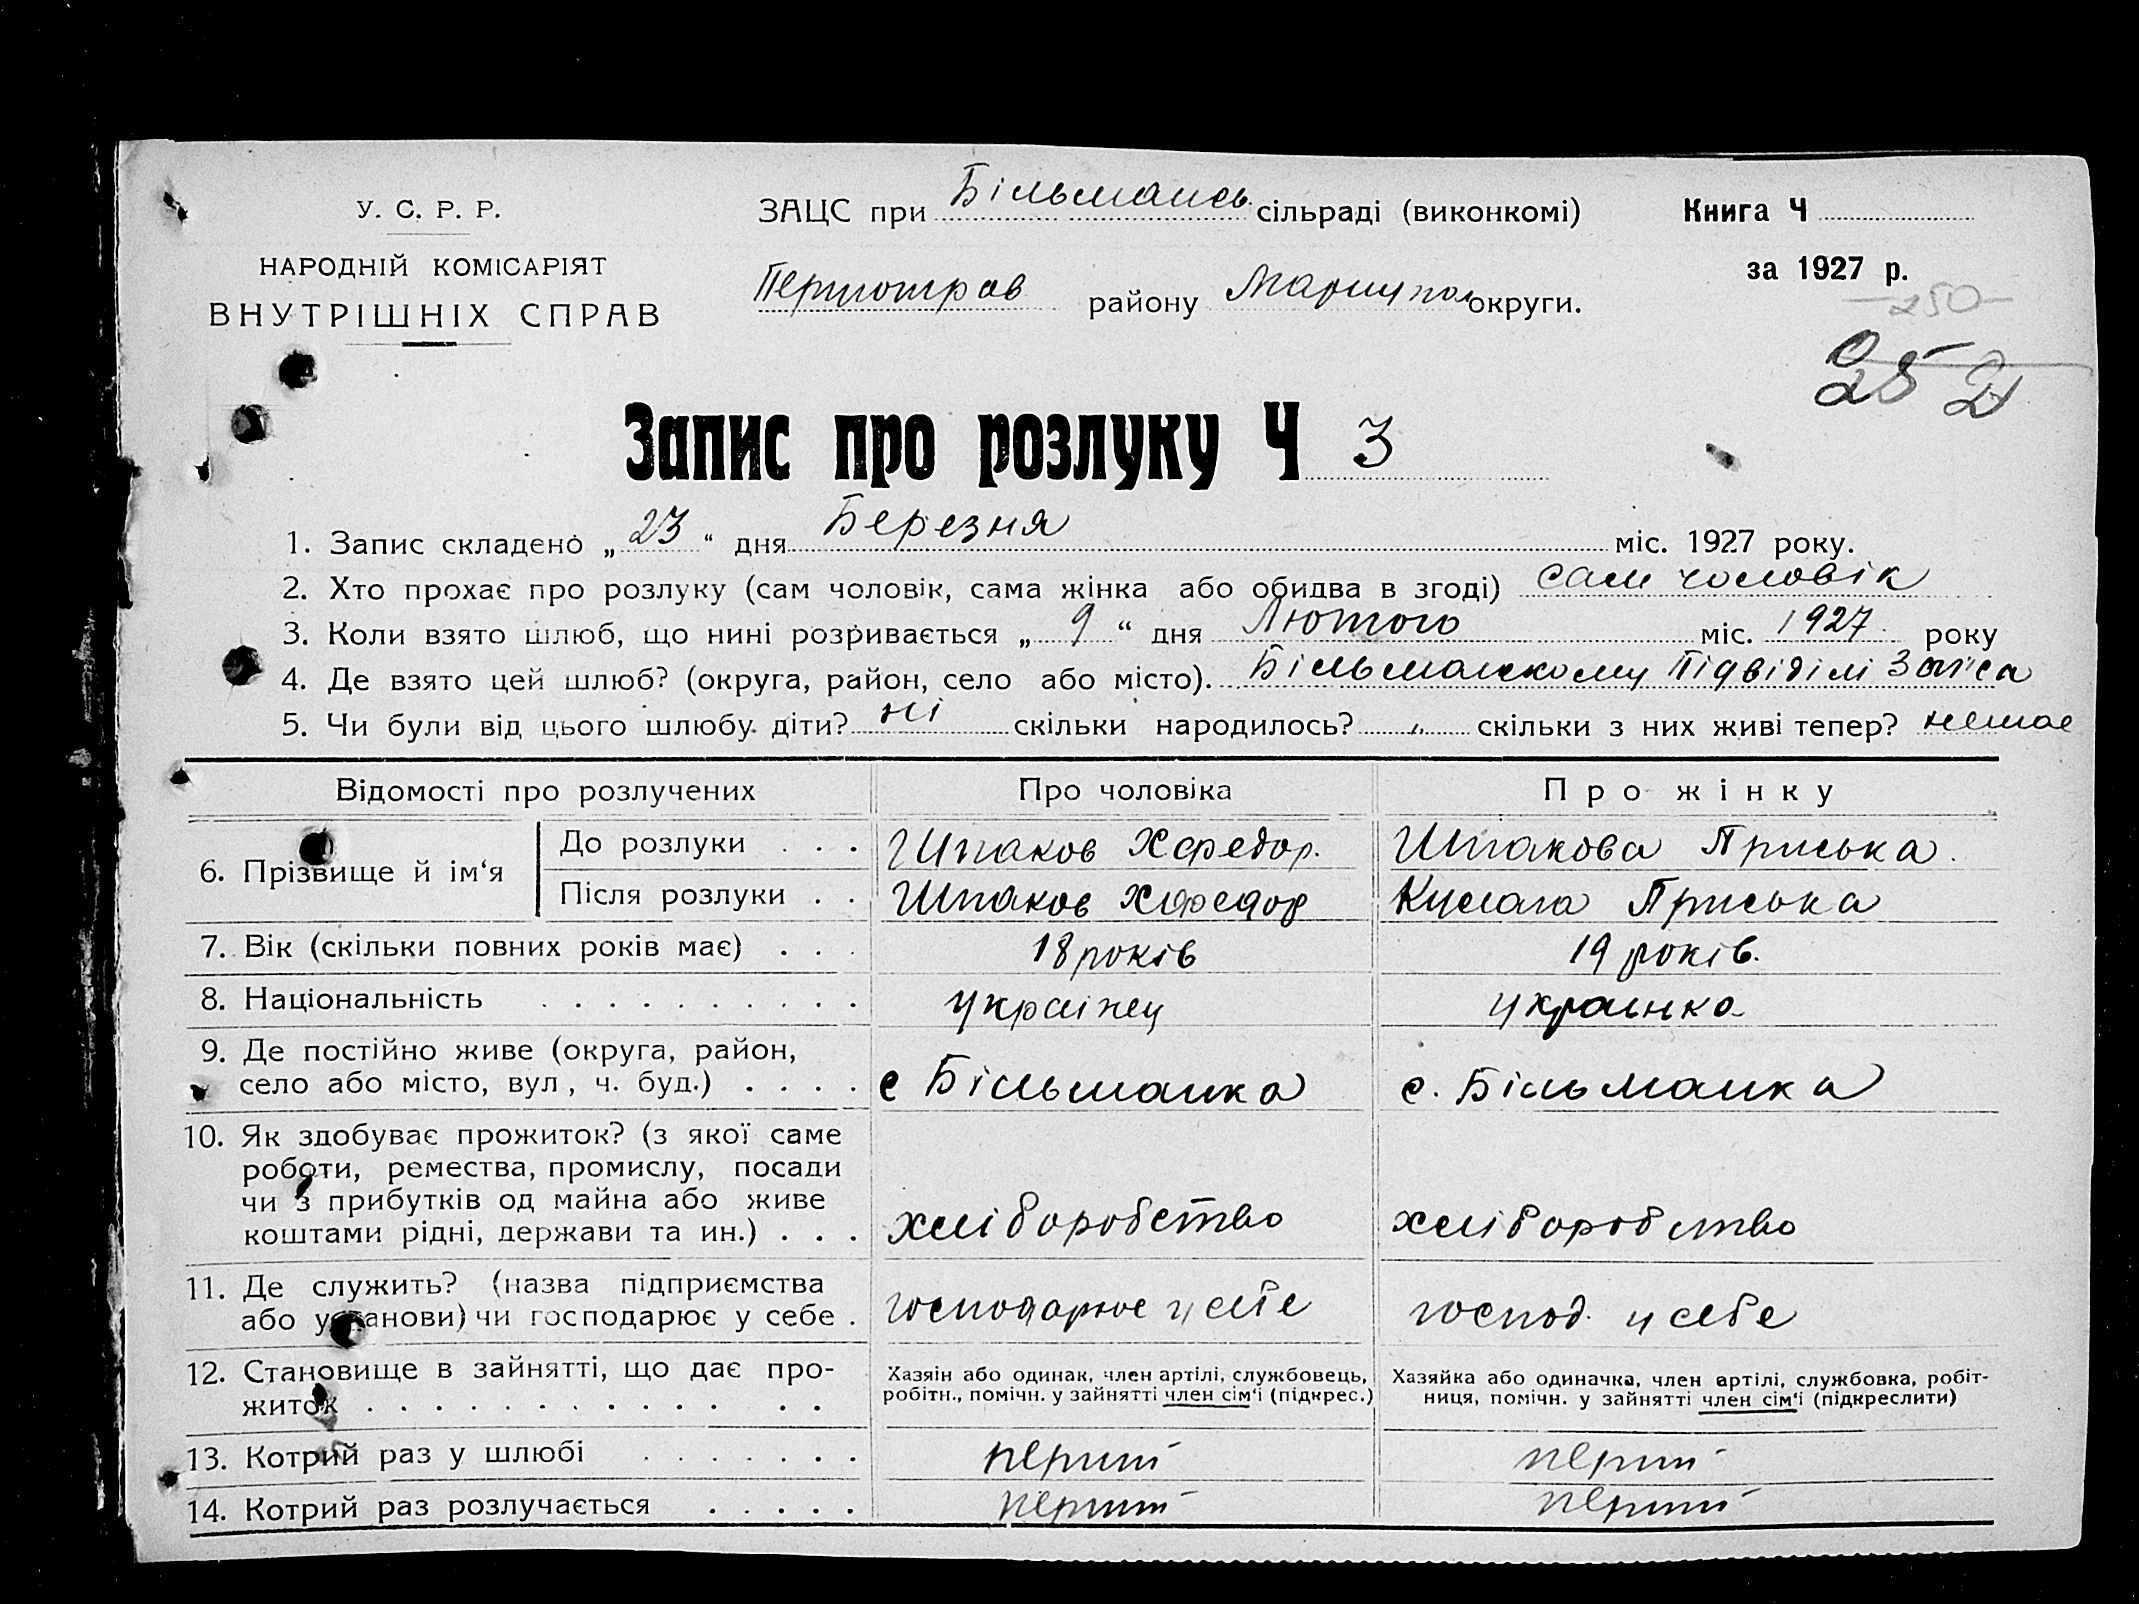 У. С. Р. Р.
НАРОДНІЙ КОМІСАРІЯТ
ВНУТРІШНІХ СПРАВ
ЗАЦС при Більмансь. сільраді (виконкомі)
Першотрав району Маріупол округи.
Книга Ч
за 1927 р.
250
252
Запис про розлуку Ч 3
1. Запис складено „ 23 “ дня Березня міс. 1927 року.
2. Хто прохає про розлуку (сам чоловік, сама жінка або обидва в згоді) сам чоловік
3. Коли взято шлюб, що нині розривається „ 9 “ дня Лютого міс. 1927 року
4. Де взято цей шлюб? (округа, район, село або місто). Більманскому Підвіділі Запса
5. Чи були від цього шлюбу діти? ні скільки народилось? „ скільки з них живі тепер? немае
Відомості про розлучених Про чоловіка Про жінку
6. Прізвище й ім‘я До розлуки . . . Шпаков Хфедор. Шпакова Приська.
Після розлуки . . Шпаков Хфедор Приська
7. Вік (скільки повних років має) . . . 18 років 19 років.
8. Національність . . . . . . . . . . Україньец украінка
9. Де постійно живе (округа, район,
село або місто, вул, ч. буд.) . . . . с Більманка с. Більманка
10. Як здобуває прожиток? (з якої саме
роботи, ремества, промислу, посади
чи з прибутків од майна або живе
коштами рідні, держави та ин.) . . . хліборобство хліборобство
11. Де служить? (назва підприємства
або установи) чи господарює у себе . господарюе у себе господ. у себе
12. Становище в зайнятті, що дає про-
житок . . . . . . . . . . . . .
Хазяїн або одинак, член артілі, службовець,
робітн., помічн. у зайнятті член сім‘ї (підкрес.)
Хазяйка або одиначка, член артілі, службовка, робіт-
ниця, помічн. у зайнятті член сім‘ї (підкреслити)
13. Котрий раз у шлюбі . . . . . . . перший перший
14. Котрий раз розлучається . . . . . перший перший